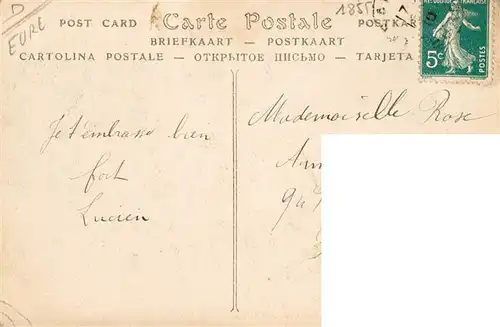 D
EURE
1855
POST CARD Carte Postale POSTKA
BRIEFKAART — POSTKAART
CARTOLINA POSTALE — ОТКРЫТОЕ ПИСЬМО — TARJETA
FRANÇAISE
5c
POSTES
Je t'embrasse bien
fort
Lucien
Mademoiselle Rose